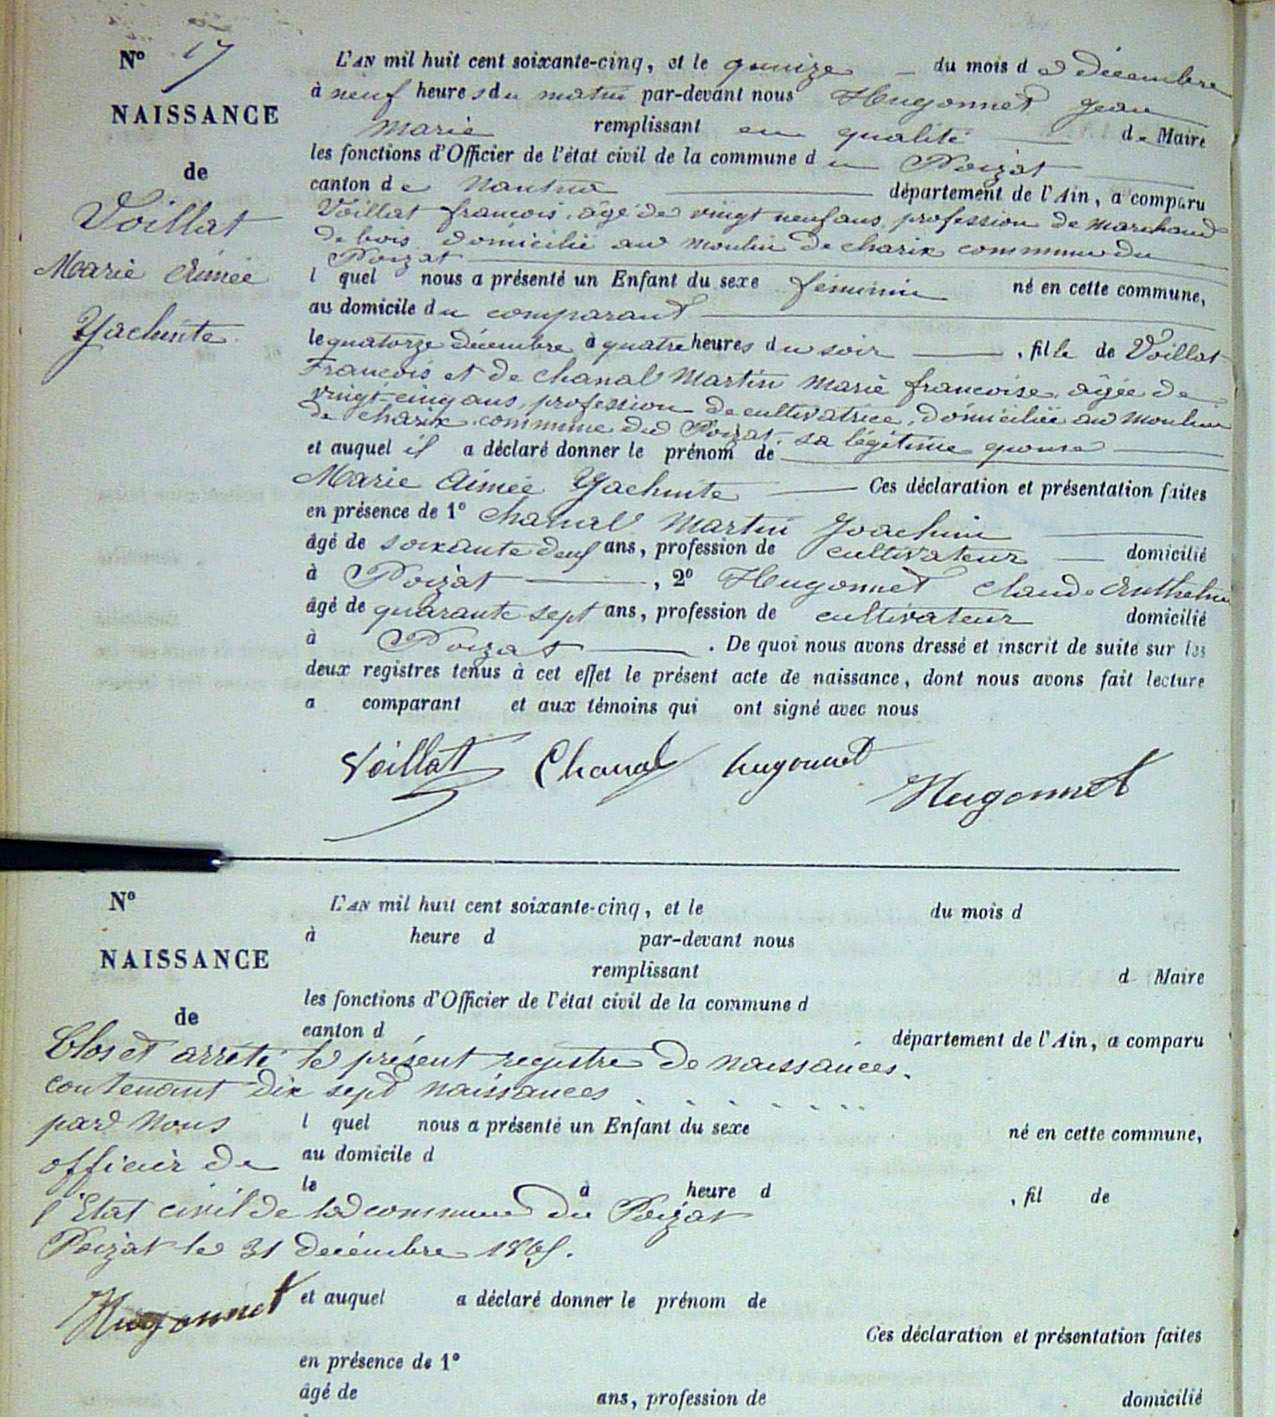 N° 17
NAISSANCE
de
Voillat
Marie Aimée
Yachinte
L'AN mil huit cent soixante-cinq, et le quinze du mois de décembre
à neuf heures du matin par-devant nous Hugonnet Jean
Marie remplissant en qualité de Maire
les fonctions d'Officier de l'état civil de la commune du Poizat
canton de Nantua département de l'Ain, a comparu
Voillat françois, âgé de vingt neuf ans, profession de marchand
de bois domicilié au moulin de charix commune du
Poizat
l quel nous a présenté un Enfant du sexe féminin né en cette commune,
au domicile du comparant
le quatorze décembre à quatre heures du soir , fille de Voillat
François et de Chanal Martin Marie françoise, âgée de
vingt-cinq ans, profession de cultivatrice, domiciliée au moulin
de charix commune du Poizat, sa légitime épouse
et auquel il a déclaré donner le prénom de
Marie Aimée Yachinte Ces déclaration et présentation faites
en présence de 1° Chanal Martin Joachim
âgé de soixante deux ans, profession de cultivateur domicilié
à Poizat , 2° Hugonnet Claude Anthelme
âgé de quarante sept ans, profession de cultivateur domicilié
à Poizat . De quoi nous avons dressé et inscrit de suite sur les
deux registres tenus à cet effet le présent acte de naissance, dont nous avons fait lecture
a comparant et aux témoins qui ont signé avec nous
Voillat Chanal hugonnet
Hugonnet
N°
NAISSANCE
de
L'AN mil huit cent soixante-cinq, et le du mois d
à heure d par-devant nous
remplissant d Maire
les fonctions d'Officier de l'état civil de la commune d
canton d département de l'Ain, a comparu
Clos et arrêté le présent registre de naissances.
contenant dix sept naissances
par nous l quel nous a présenté un Enfant du sexe né en cette commune,
officier de au domicile d
le à heure d , fil de
l'Etat civil de la commune du Poizat
Poizat le 31 décembre 1865.
Hugonnet
et auquel a déclaré donner le prénom de
Ces déclaration et présentation faites
en présence de 1°
âgé de ans, profession de domicilié